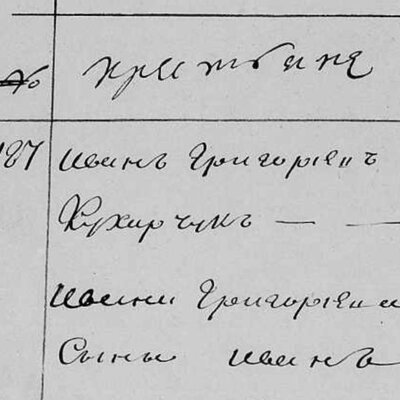 № Крестьяне
187 Иванъ Григоріевъ
Кухарчукъ — —
Ивана Григоріева
Сынъ Иванъ